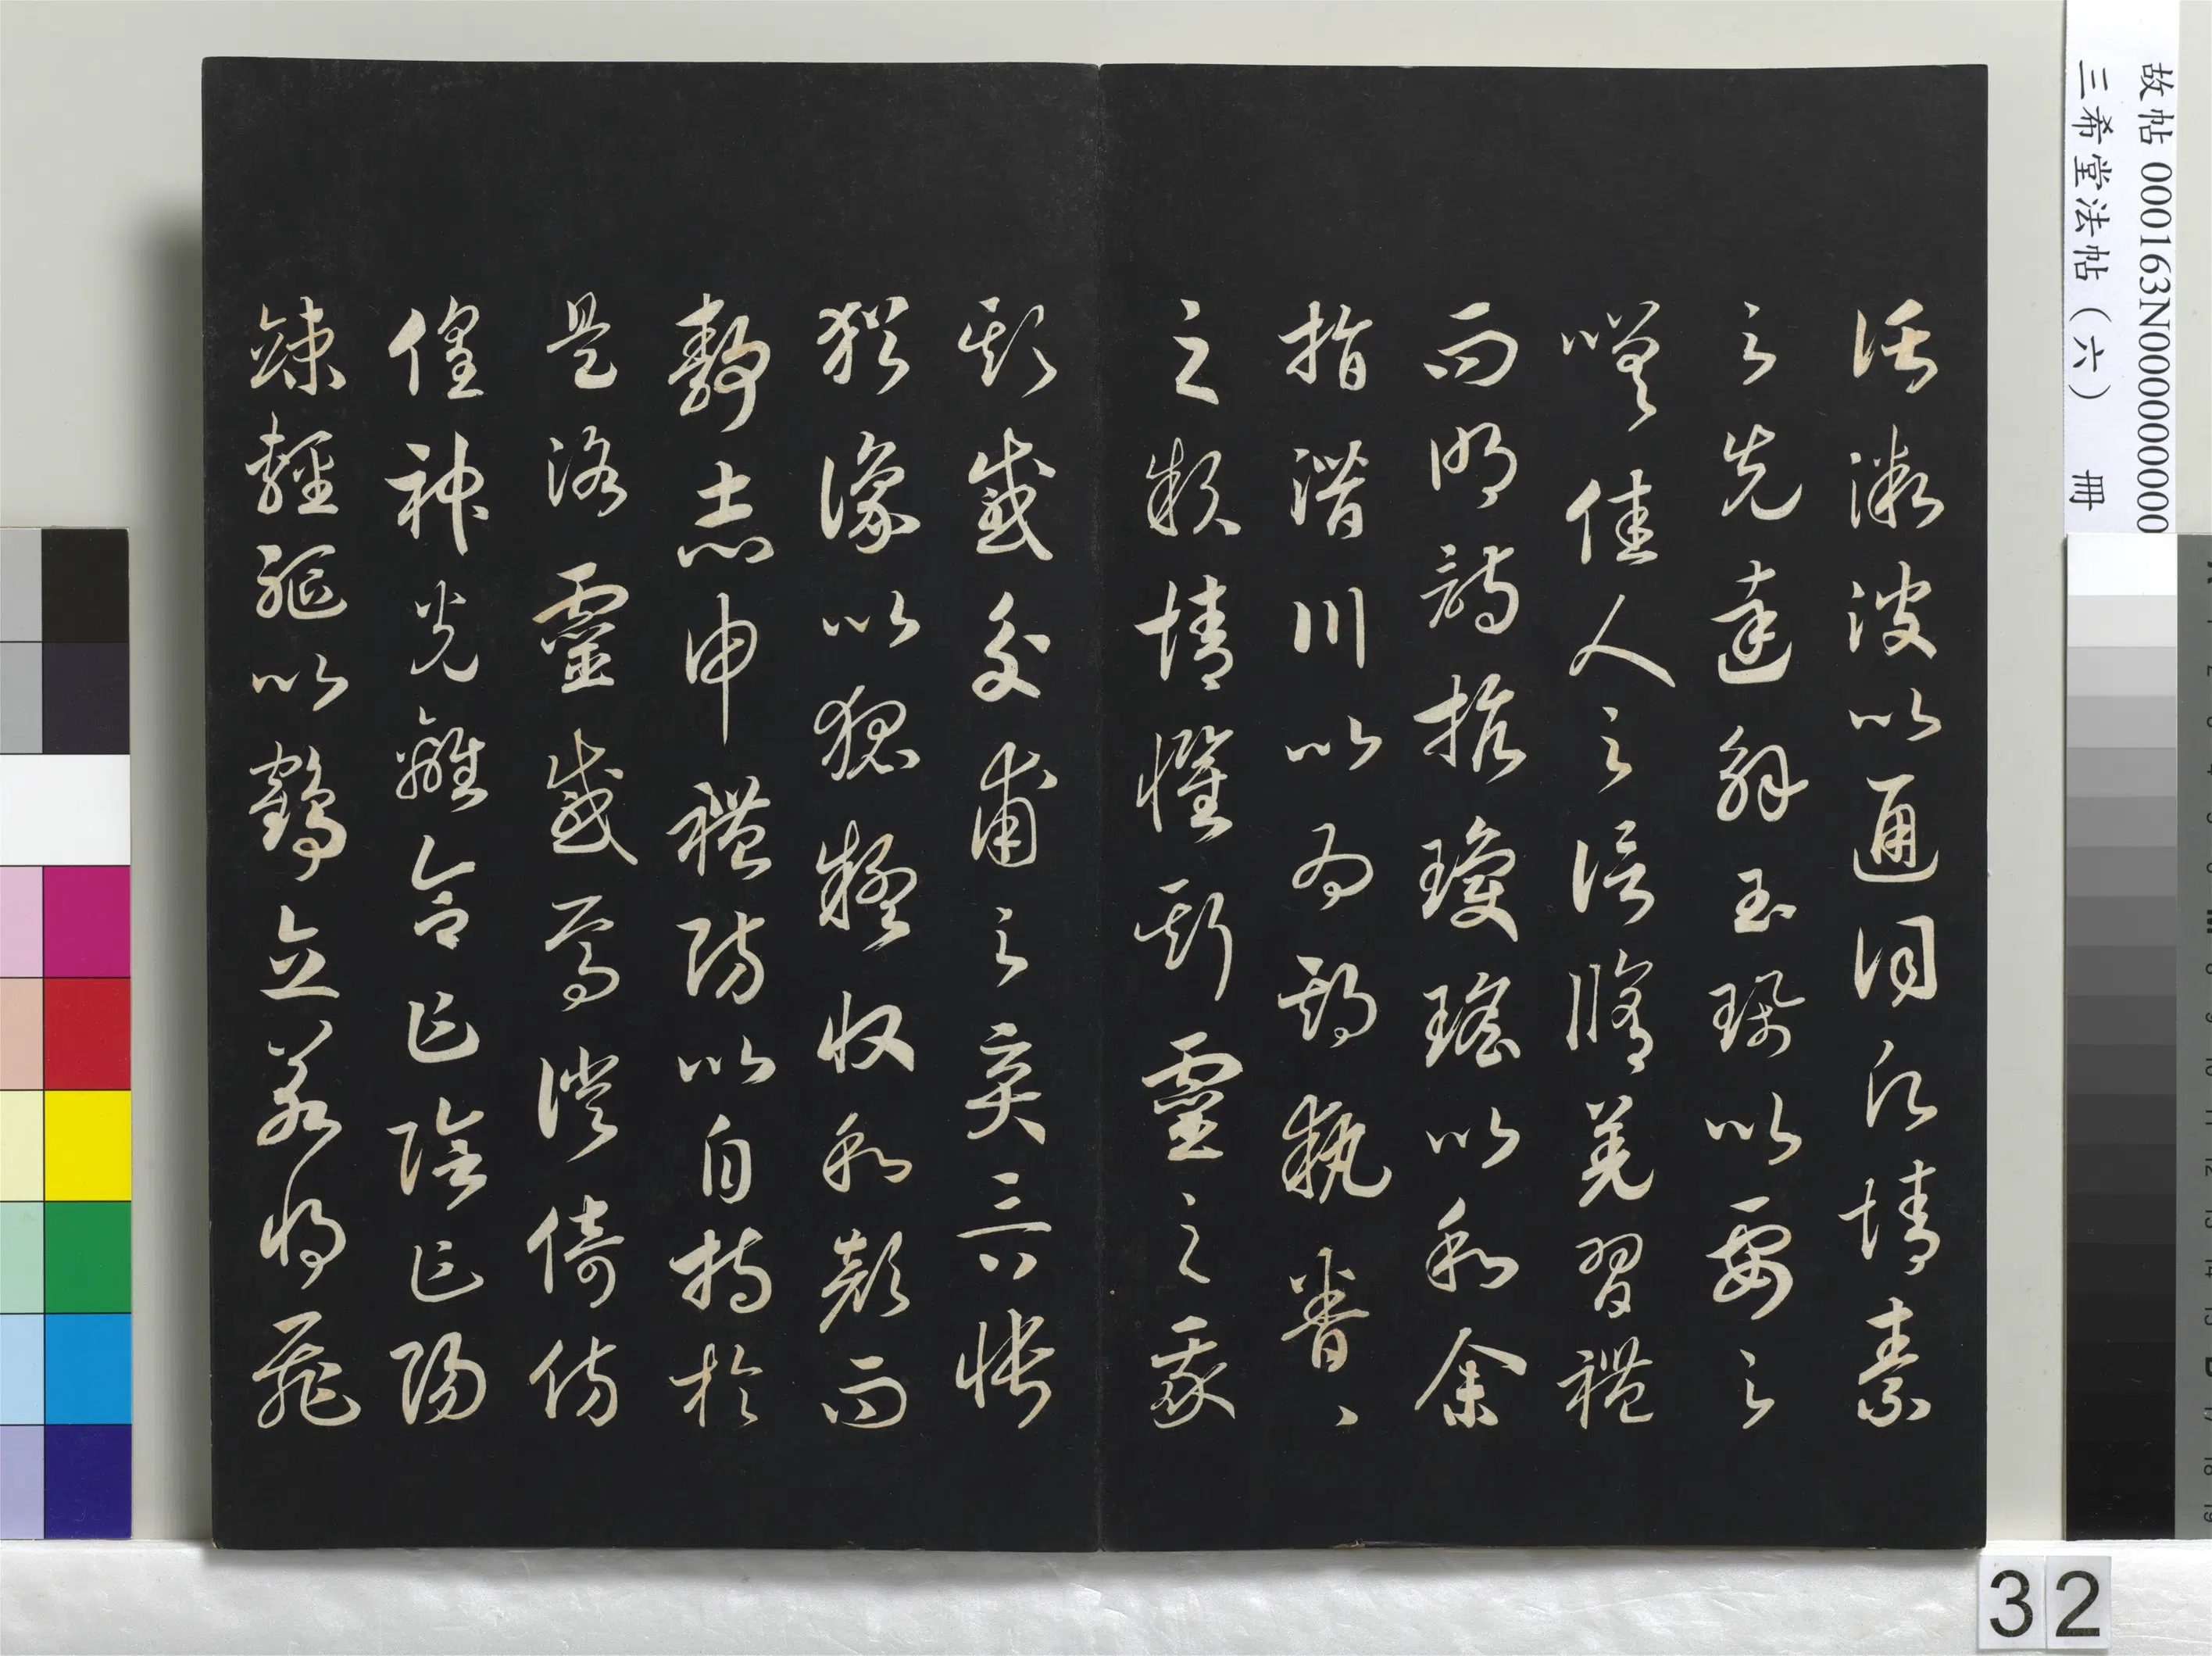 故帖 000163N000000000
三希堂法帖（六） 冊
託微波以通詞願情素
之先達解玉珮以要之
嗟佳人之信脩羌習禮
而明詩抗瓊瑤以和余
指潛川以為期執眷〻
之款情懼斯靈之我
欺感交甫之棄言悵
猶豫以狐疑收和顏而
靜志申禮防以自持於
是洛靈感焉徙倚仿
偟神光離合乍陰乍陽
竦輕軀以鶴立若將飛
32